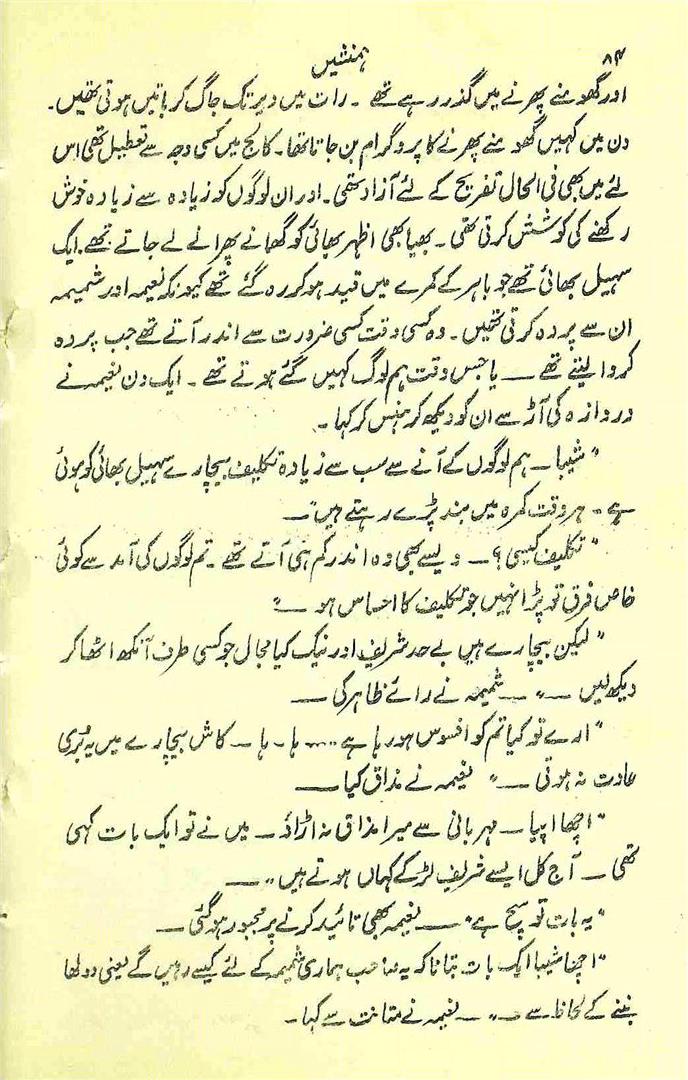 ۸۴
ہمنشیں
اور گھومنے پھرنے میں گذر رہے تھے ۔ رات میں دیر تک جاگ کر باتیں ہوتی تھیں۔
دن میں کہیں گھومنے پھرنے کا پروگرام بن جاتا تھا۔ کالج میں کسی وجہ سے تعطیل تھی اس
لئے میں بھی فی الحال تفریح کے لئے آزاد تھی۔ اور ان لوگوں کو زیادہ سے زیادہ خوش
رکھنے کی کوشش کرتی تھی ۔ بھیا بھی اظہر بھائی کو گھمانے پھرانے لے جاتے تھے۔ ایک
سہیل بھائی تھے جو باہر کے کمرے میں قید ہو کر رہ گئے تھے کیونکہ نعیمہ اور شمیمہ
ان سے پردہ کرتی تھیں۔ وہ کسی وقت کسی ضرورت سے اندر آتے تھے جب پردہ
کروا لیتے تھے ـــ یا جس وقت ہم لوگ کہیں گئے ہوتے تھے ۔ ایک دن نعیمہ نے
دروازہ کی آڑ سے ان کو دیکھ کر ہنس کر کہا ۔
"شیبا ـ ہم لوگوں کے آنے سے سب سے زیادہ تکلیف بیچارے سہیل بھائی کو ہوئی
ہے ۔ ہر وقت کمرہ میں بند پڑے رہتے ہیں" ــ
"تکلیف کیسی؟ ـ ویسے بھی وہ اندر کم ہی آتے تھے ۔ تم لوگوں کی آمد سے کوئی
خاص فرق تو پڑا نہیں جو تکلیف کا احساس ہو ــ"
"لیکن بیچارے ہیں بے حد شریف اور نیک کیا مجال جو کسی طرف آنکھ اٹھا کر
دیکھ لیں ــ" ـــ شمیمہ نے رائے ظاہر کی ـــ
"ارے تو کیا تم کو افسوس ہو رہا ہے ..... ہا ـ ہا ـ کاش بیچارے میں یہ بُری
عادت نہ ہوتی ــ" نعیمہ نے مذاق کیا ـــ
"اچھا اپیا ـ مہربانی سے میرا مذاق نہ اڑاؤ ـ میں نے تو ایک بات کہی
تھی ـ آج کل ایسے شریف لڑکے کہاں ہوتے ہیں" ـــ
"یہ بات تو سچ ہے" ـــ نعیمہ بھی تائید کرنے پر مجبور ہو گئی ـــ
"اچھا شیبا ایک بات بتانا کہ یہ صاحب ہماری شمیمہ کے لئے کیسے رہیں گے یعنی دولھا
بننے کے لحاظ سے ــ" ــ نعیمہ نے متانت سے کہا ۔